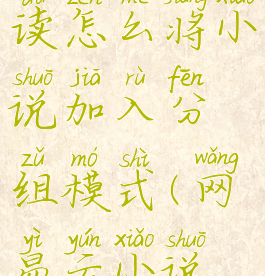 dú zěn me jiāng xiǎo
读怎么将小
shuō jiā rù fēn
说加入分
zǔ mó shì wǎng
组模式(网
yì yún xiǎo shuō
易云小说